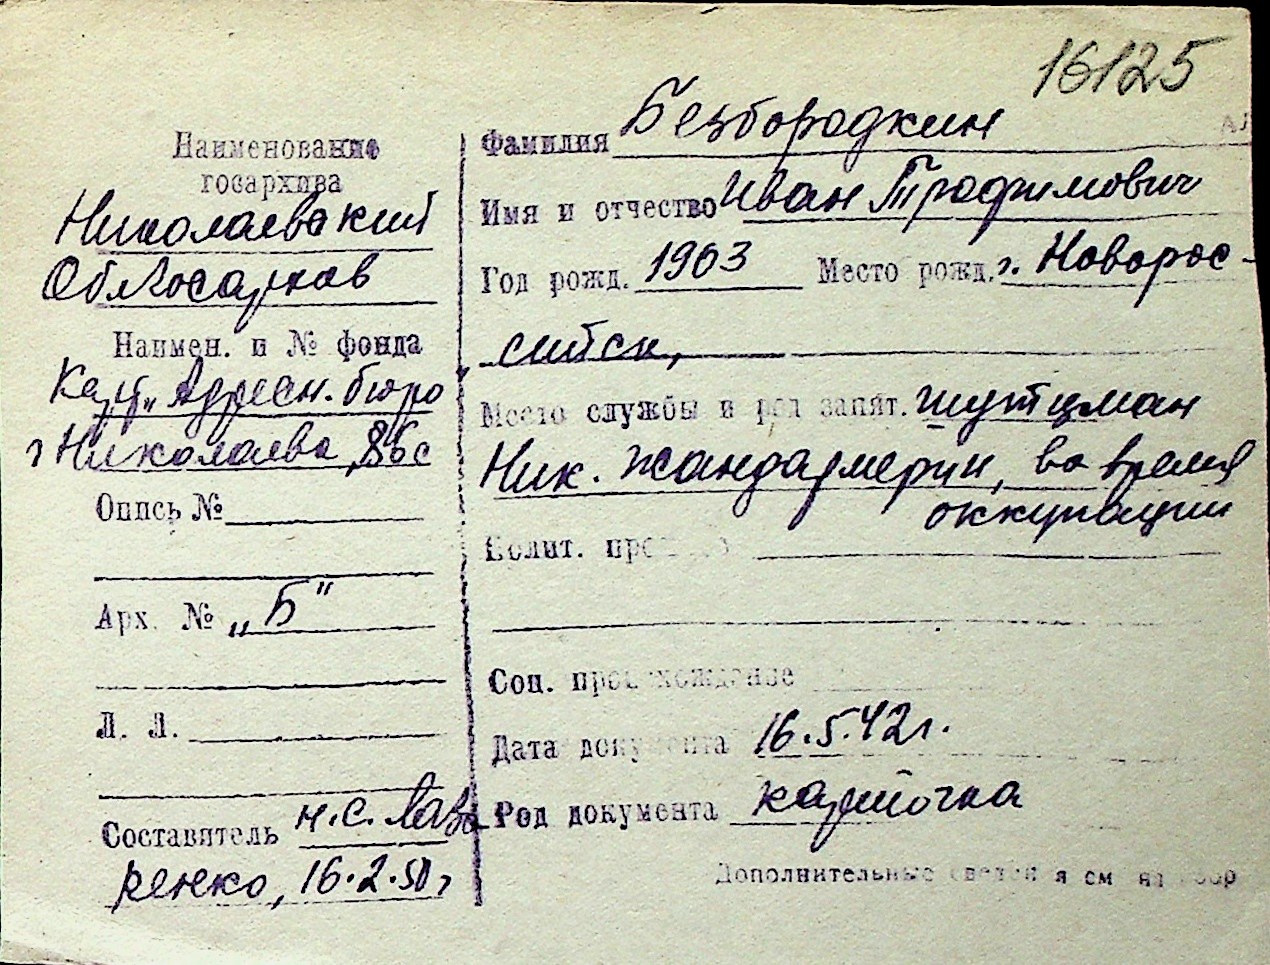 16125
Наименование
госархива
Николаевский
Облгосархив
Наимен. и № фонда
Карт. „Адресн. бюро
г Николаева,
Опись №
Арх. № „Б"
Л. Л.
Составитель н.с. Лаза
ренко, 16.2.50г
Фамилия Безбородкин
Имя и отчество Иван Трофимович
Год рожд. 1903 Место рожд. г. Новорос-
сийск,
Место службы и род занят. шутцман
Ник. жандармерии, во время
оккупации
Полит. прошлое
Соц. происхождение
Дата документа 16.5.42г.
Род документа карточка
Дополнительные сведения см на обор